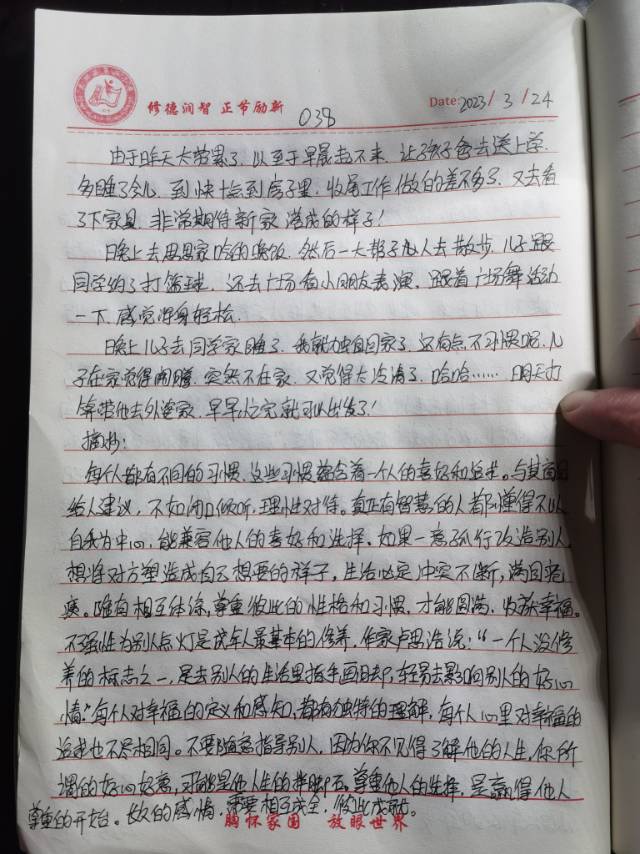 修德润智 正节励新
038
Date: 2023 / 3 / 24
由于昨天太劳累了，以至于早晨起不来，让孩子爸去送上学，
多睡了会儿，到快十点到房子里，收尾工作做的差不多了，又去看
了下家具，非常期待新家落成的样子！
晚上去思思家吃的晚饭，然后一大帮子人去散步，儿子跟
同学约了打篮球，还去广场看小朋友表演，跟着广场舞活动
一下，感觉浑身轻松。
晚上儿子去同学家睡了，我就独自回家了，还有点不习惯呢，儿
子在家觉得闹腾，突然不在家，又觉得太冷清了，哈哈……明天打
算带他去外婆家，早早忙完就可以出发了！
摘抄：
每个人都有不同的习惯，这些习惯蕴含着一个人的喜好和追求。与其
给人建议，不如闭口倾听，理性对待。真正有智慧的人都懂得不以
自我为中心，能兼容他人的喜好和选择。如果一意孤行改造别人，
想将对方塑造成自己想要的样子，生活必定冲突不断，满目疮
痍。唯有相互体谅，尊重彼此的性格和习惯，才能圆满，收获幸福。
不强性为别人点灯是成年人最基本的修养，作家卢思浩说：“一个人没修
养的标志之一，是去别人的生活里指手画脚，轻易去影响别人的好心
情。”每个人对幸福的定义和感知，都有独特的理解，每个人心里对幸福的
追求也不尽相同。不要随意指导别人，因为你不见得了解他的人生，你所
谓的好心好意，可能是他人生的绊脚石。尊重他人的选择，是赢得他人
尊重的开始。长久的感情，需要相互成全，彼此成就。
胸怀家国 放眼世界